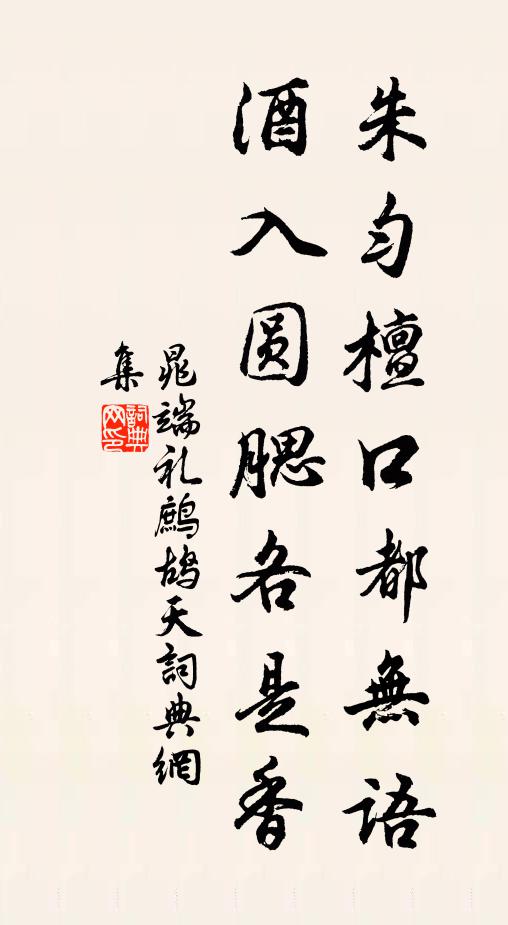 朱匀檀口都無語
酒入圆腮各是香
晁端礼鹧鸪天詞典網
集
詞典网印